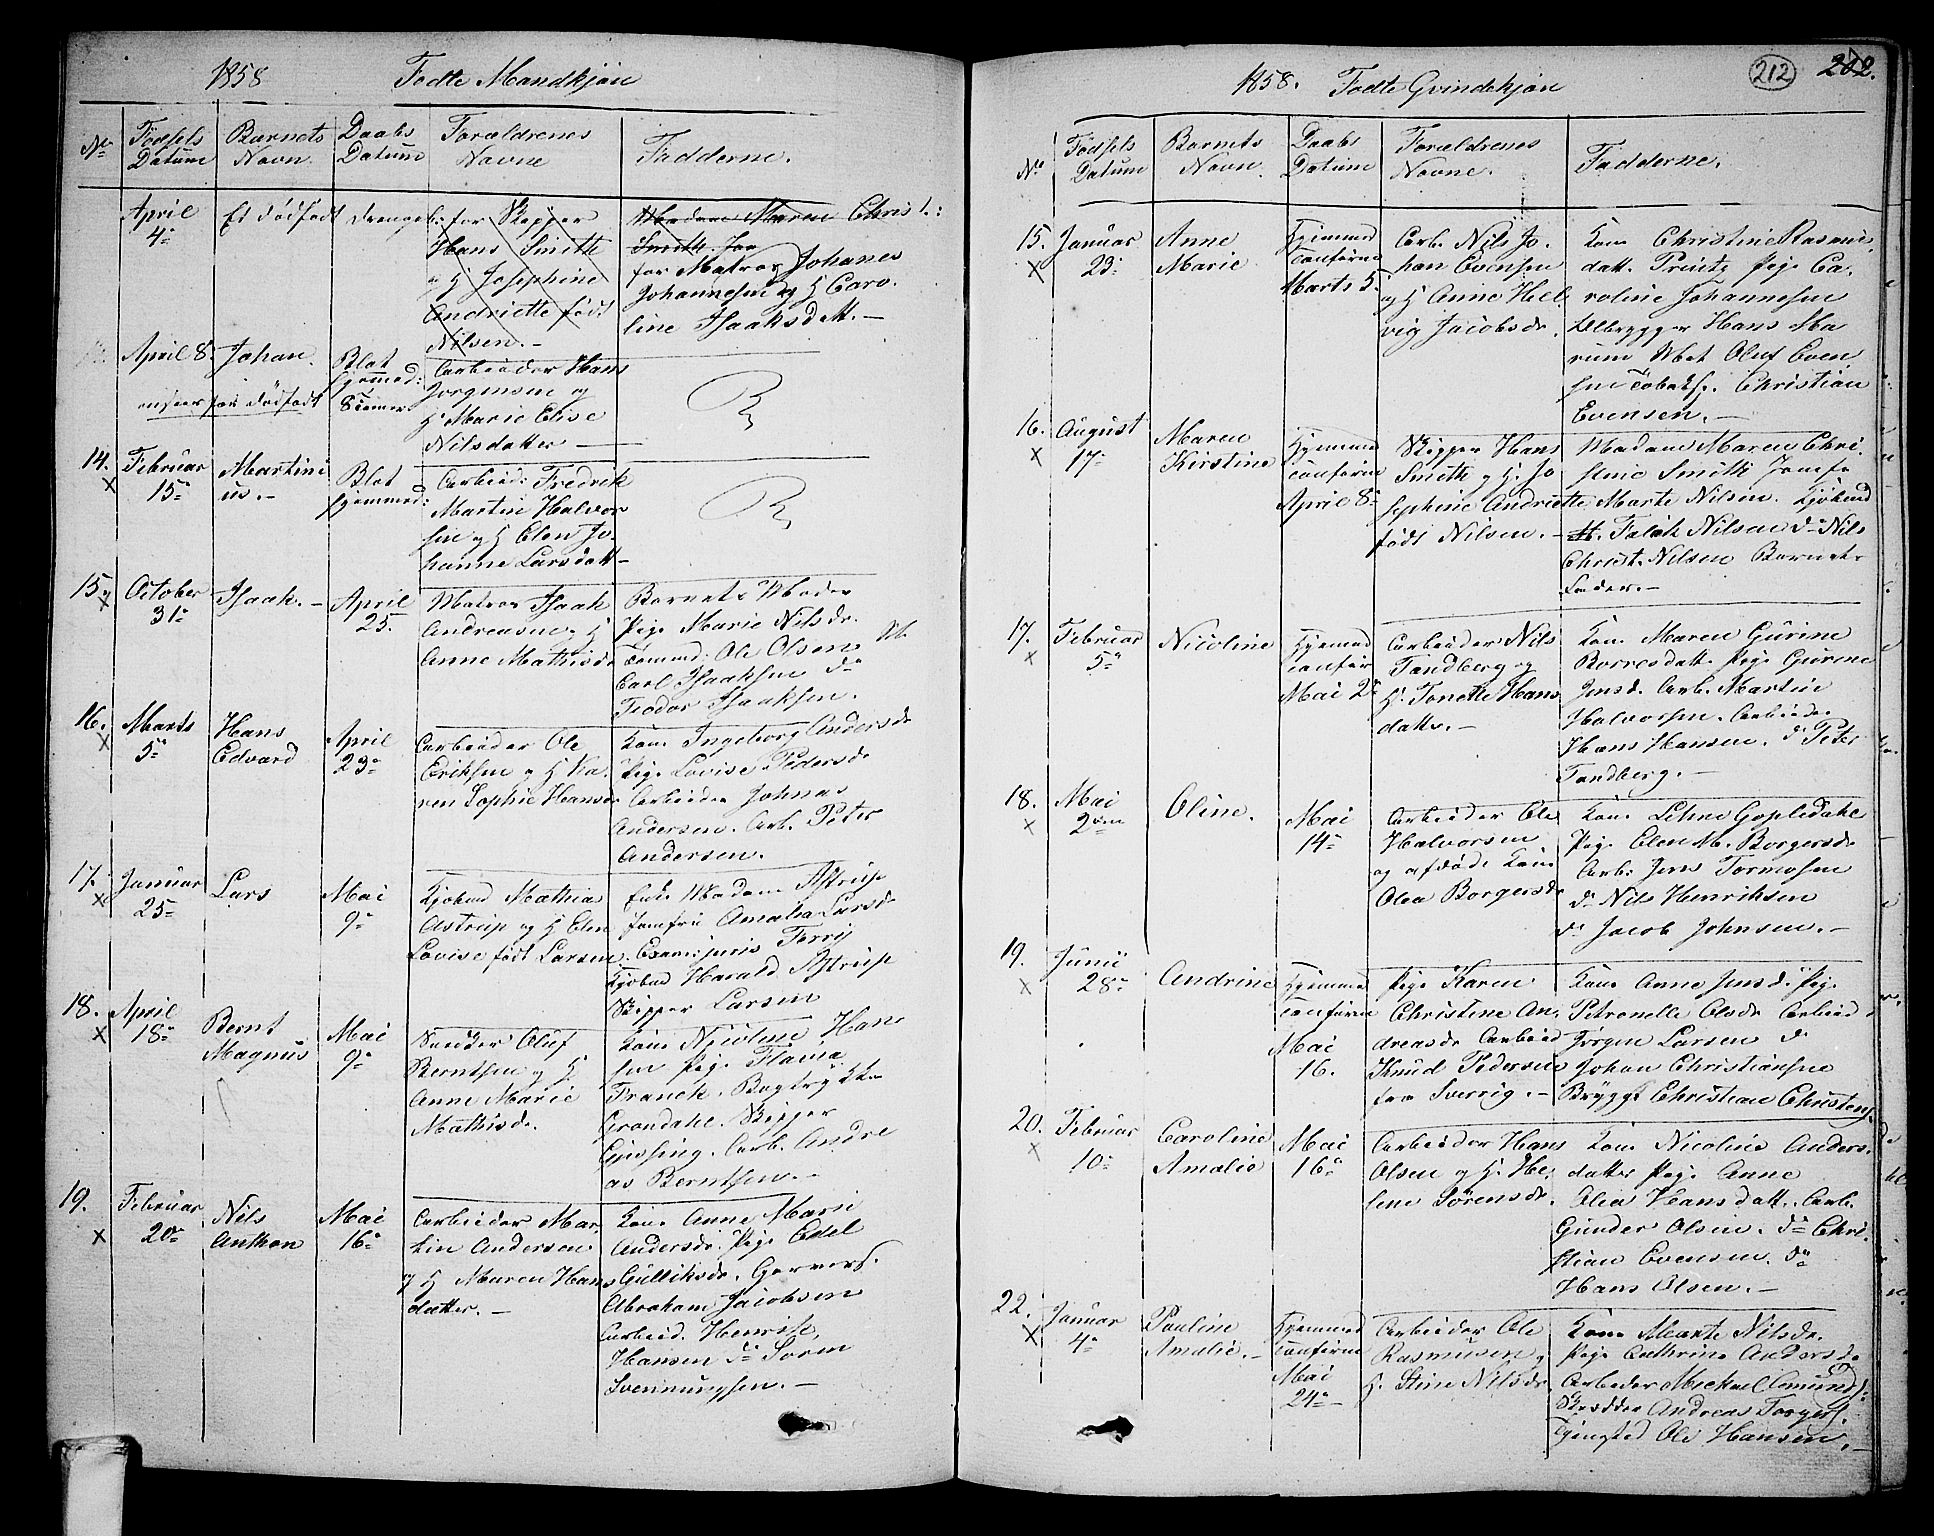 1858 Fødte Mandkjøn
No Fødsels Datum Barnets Navn. Daabs Datum Forældrenes Navne Fadderne.
April 4de Et dødfødt drengeb: for Skipper
Hans Smith
og H Josephine
Andriette født
Nilsen. –
Madam Maren Christ.:
Smith Jon
for Matros Johanes
Johannesen og H Caro
line Isaaksdatt. –
April 8. Johan. Blot hjemmed:
ansees for dødfødt
Arbeider Hans
Jørgensen og
H Marie Elise
Nilsdatter
14. Februar 15de Martini
us. –
Blot
hjemmed:
Arbeid: Fredrik
Martin Halvor
sen og H Elen Jo
hanne Larsdatt –
15. October 31te Isaak. – April 25.
Matros Isaak
Andreasen og H
Anne Mathisdr
Barnets Moder
Pige Marie Nilsdr.
Tømmd: Ole Olsen
Carl Isaaksen do
Tiodor Isaaksen.
16. Marts 5te Hans
Edvard
April 23de
Arbeider Ole
Eriksen og H Ka
ren Sophie Hansdr
Kone Ingeborg Andersdr
Pige Lovise Pedersdr
Arbeider Johnas
Andersen. Arb. Peter
Andersen.
17. Januar 25de Lars Mai 9de
Kjøbmd Mathias
Astrup og H Elen
Lovise født Larsen
Enke Madam Astrup
Jomfru Amalia Larsdr
Exam: juris Ferrij
Kjøbmd Harald Astrup
Skipper Larsen
18. April 18de Bernt
Magnus
Mai 9de
Snider Oluf
Berntsen og H
Anne Marie
Mathisdr.
Kone Nicoline Han
sen Pige Flavia
Franck. Bogtrykker
Grøndahl. Skipper
Gjøsing. Arb. Andre
as Berntsen. –
19. Februar 20de Nils
Anthon
Mai 16de
Arbeider Mar
tin Andersen
og H Maren Hans
datter. –
Kone Anne Marie
Andersdr. Pige Edel
Gulliksdr. Garvers.
Abraham Jacobsen
Arbeid. Henrik
Hansen do Søren
Svennungsen. –
1858. Fødte Qvindekjøn
212 202.
No Fødsels Datum Barnets Navn. Daabs Datum Forældrenes Navne. Fadderne.
15. Januar 23de Anne
Marie
Hjemmed
confirm
Marts 5.
Arb. Nils Jo.
han Evensen
og H Anne Hel
vig Jacobsdr.
Kone Christine Rasmus
datt. Printz Pige Ca.
roline Johannesen
Ølbrygger Hans Ma
rum Mat Oluf Even
sen Tobaksf. Christian
Evensen. –
16. August 17de Maren
Kirstine
Hjemmed
confirm
April 8de
Skipper Hans
Smith og H. Jo
sephine Andriette
født Nilsen. –
Madam Maren Chri
stine Smith Jomfr
Marte Nilsen. Kjøbmd
Falck Nilsen do Nils
Christ. Nilsen Barnets
Fader. –
17. Februar 5te Nicoline Hjemmed
confir
Mai 2de
Arbeider Nils
Tandberg og
H. Tonette Hans
datter. –
Kone Maren Gurine
Borresdatt. Pige Gurine
Jensd. Arb. Martin
Halvorsen. Arbeider
Hans Hansen. do Peter
Tandberg. –
18. Mai 2den Oline. Mai 14de
Arbeider Ole
Halvorsen
og afdøde Kone
Olea Borgersdr
Kone Lehne Gopledahl
Pige Elen M. Borgersdr
Arb. Jens Tormosen
do Nils Henriksen
do Jacob Johnsen. –
19. Junii 28de Andrine Hjemmed
confirm
Mai
16.
Pige Karen
Christine An.
dreasdr Arbeid
Knud Pedersen
fra Sverrig. –
Kone Anne Jensd. Pige
Petronelle Olsdr Arbeid
Jørgen Larsen do
Johan Christiansen
Bryggr Christian Christens.
20. Februar 10de Caroline
Amalie
Mai
16de
Arbeider Hans
Olsen og H. He.
lene Sørensdr.
Kone Nicoline Anders.
datter Pige Anne
Olea Hansdatt. Arb.
Gunder Olsen. do Chri.
stian Evensen. do
Hans Olsen. –
22. Januar 4de Pauline
Amalie. –
Hjemmed
confirm
Mai
24de –
Arbeider Ole
Rasmusen og
H. Stine Nilsdr.
Kone Marte Nilsdr.
Pige Cathrine Andersdr
Arbeder Mickael Amunds.
Skrædder Andreas Torgers.
Ole Hansen. –